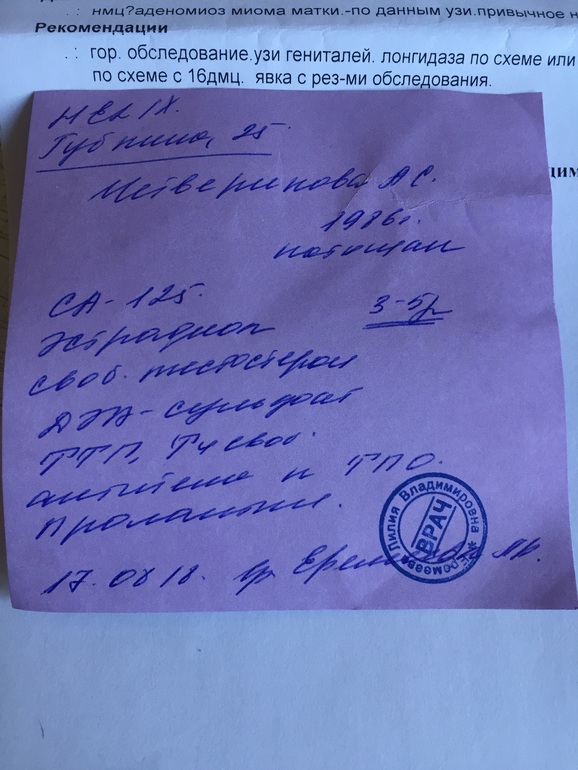 . : нмц?аденомиоз миома матки.-по данным узи.привычное н
Рекомендации
. : гор. обследование.узи гениталей. лонгидаза по схеме или
по схеме с 16дмц. явка с рез-ми обследования.
HELIX.
Губкина, 25.
А С.
1986г.
натощак
СА-125.
3-5
Эстрадиол
своб. тестостерон
ДЭА-сульфат
ТТГ, Т4 своб.
антитела к ТПО.
Пролактин.
Лилия Владимировна
ВРАЧ
17.08 18.